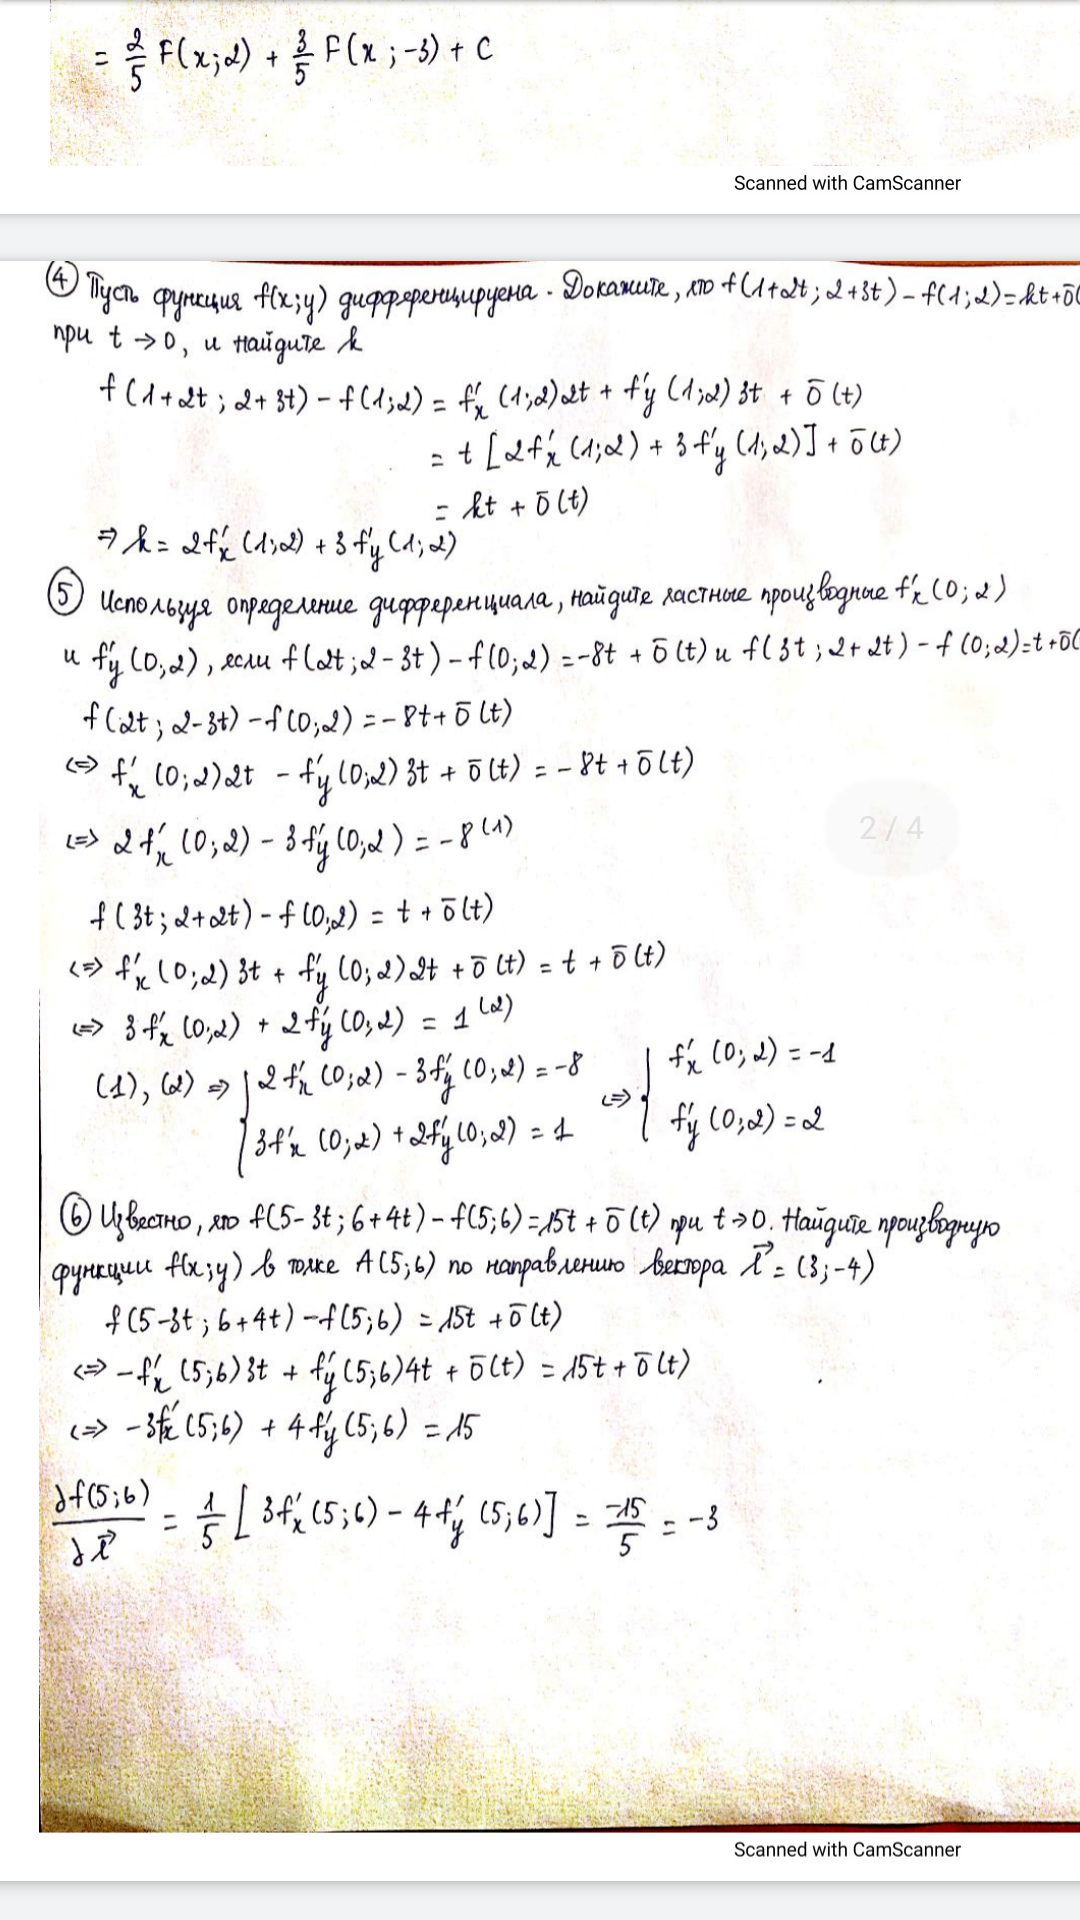 = 2/5 F(x;2) + 3/5 F(x;-3) + C
Scanned with CamScanner
④ Пусть функция f(x;y) дифференцируема. Докажите, что f(1+2t; 2+3t) - f(1;2) = kt + ō(
при t → 0, и найдите k
f(1+2t; 2+3t) - f(1;2) = f'x (1;2)2t + f'y (1;2) 3t + ō(t)
= t [2f'x (1;2) + 3f'y (1;2)] + ō(t)
= kt + ō(t)
⇒ k = 2f'x (1;2) + 3f'y (1;2)
⑤ Используя определение дифференциала, найдите частные производные f'x (0;2)
и f'y (0;2), если f(2t; 2-3t) - f(0;2) = -8t + ō(t) и f(3t; 2+2t) - f(0;2) = t + ō(
f(2t; 2-3t) - f(0;2) = -8t + ō(t)
⇔ f'x (0;2)2t - f'y (0;2) 3t + ō(t) = -8t + ō(t)
⇔ 2f'x (0;2) - 3f'y (0;2) = -8 (1)
2 / 4
f(3t; 2+2t) - f(0;2) = t + ō(t)
⇔ f'x (0;2) 3t + f'y (0;2) 2t + ō(t) = t + ō(t)
⇔ 3f'x (0;2) + 2f'y (0;2) = 1 (2)
(1), (2) ⇒ { 2f'x (0;2) - 3f'y (0;2) = -8 ⇔ { f'x (0;2) = -1
3f'x (0;2) + 2f'y (0;2) = 1 f'y (0;2) = 2
⑥ Известно, что f(5-3t; 6+4t) - f(5;6) = 15t + ō(t) при t → 0. Найдите производную
функции f(x;y) в точке A(5;6) по направлению вектора l⃗ = (3;-4)
f(5-3t; 6+4t) - f(5;6) = 15t + ō(t)
⇔ -f'x (5;6)3t + f'y (5;6)4t + ō(t) = 15t + ō(t)
⇔ -3f'x (5;6) + 4f'y (5;6) = 15
∂f(5;6)/∂l⃗ = 1/5 [3f'x (5;6) - 4f'y (5;6)] = -15/5 = -3
Scanned with CamScanner